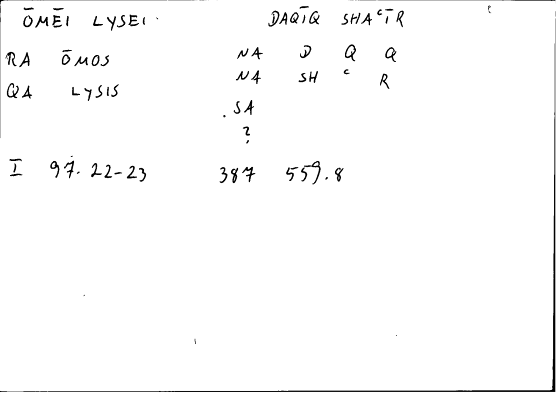 ŌMĒI LYSEI. DAQĪQ SHAᶜĪR
RA ŌMOS NA D Q Q
QA LYSIS NA SH ᶜ R
. SA
?
I 97.22-23 387 559.8